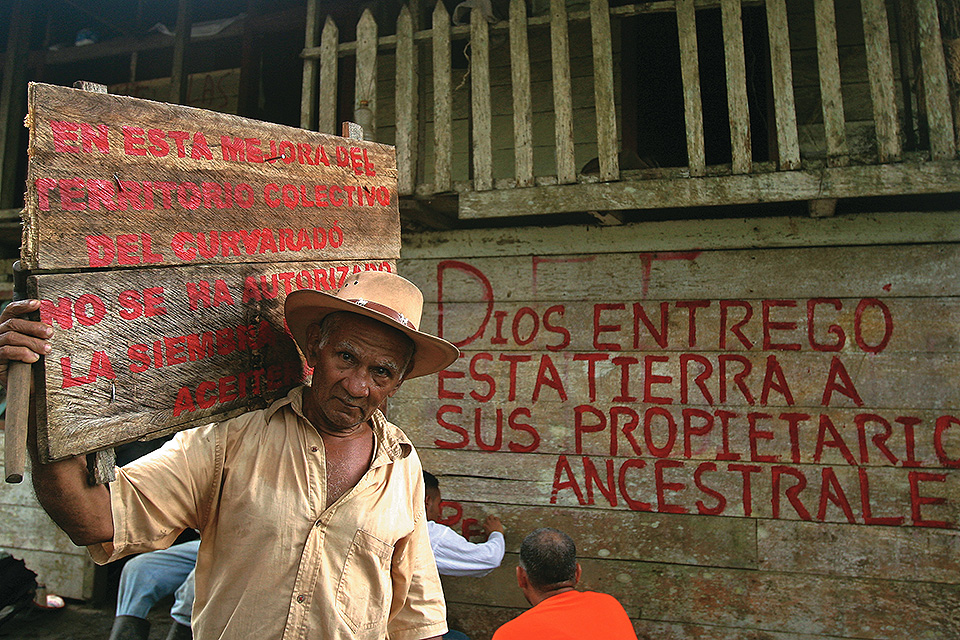 EN ESTA MEJORA DEL
TERRITORIO COLECTIVO
DEL CURVARADÓ
NO SE HA AUTORIZADO
LA SIEMBRA
ACEITE
DIOS ENTREGO
ESTA TIERRA A
SUS PROPIETARIO
ANCESTRALE